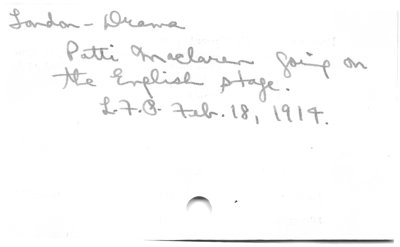 London - Drama
Patti Maclaren going on
the English stage.
L.F.P. Feb. 18, 1914.